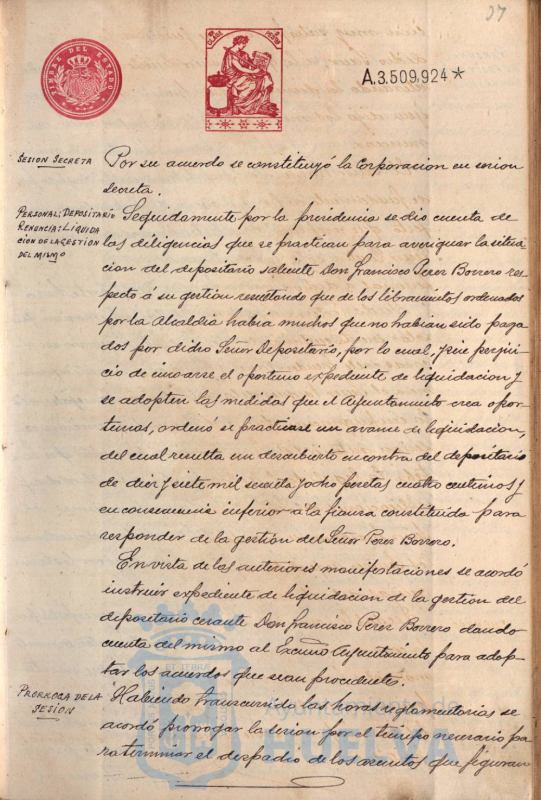 37
TIMBRE DEL ESTADO
A.3.509,924*
SESION SECRETA
Por su acuerdo se constituyó la Corporacion en sesion
secreta.
PERSONAL: DEPOSITARIO
RENUNCIA: LIQUIDA
CION DE LA GESTION
DEL MISMO
Seguidamente por la presidencia se dio cuenta de
las diligencias que se practican para averiguar la situa
cion del depositario saliente Don Francisco Perez Borrero res
pecto á su gestion resultando que de los libramientos ordenados
por la Alcaldia habia muchos que no habian sido paga
dos por dicho Señor Depositario, por lo cual, y sin perjui
cio de incoarse el oportuno expediente de liquidacion y
se adopten las medidas que el Ayuntamiento crea opor
tunas, ordenó se practicase un avance de liquidacion,
del cual resulta un descubierto en contra del depositario
de diez y siete mil sesenta y ocho pesetas cuatro centimos y
en consecuencia inferior á la fianza constituida para
responder de la gestion del Señor Perez Borrero.
En vista de las anteriores manifestaciones se acordó
instruir expediente de liquidacion de la gestion del
depositario cesante Don Francisco Perez Borrero dando
cuenta del mismo al Excmo Ayuntamiento para adop
tar los acuerdos que sean procedentes.
PRORROGA DE LA
SESION
Habiendo transcurrido las horas reglamentarias se
acordó prorrogar la sesion por el tiempo necesario pa
ra terminar el despacho de los asuntos que figuran
Ayuntamiento de
HUELVA